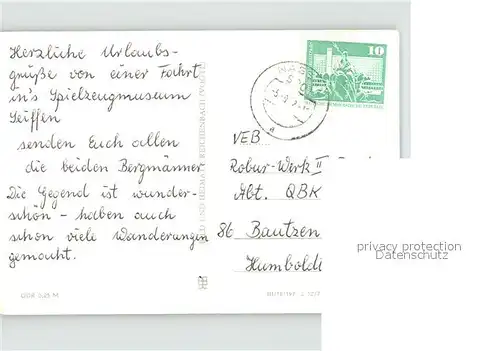 Herzliche Urlaubs-
grüße von einer Fahrt
in's Spielzeugmuseum
Seiffen
senden Euch allen
die beiden Bergmänner
Die Gegend ist wunder-
schön - haben auch
schon viele Wanderungen
gemacht.
10
VEB
Robur-Werk II
Abt. QBK
86 Bautzen
Humboldt
privacy protection
Datenschutz
DDR 0,25 M